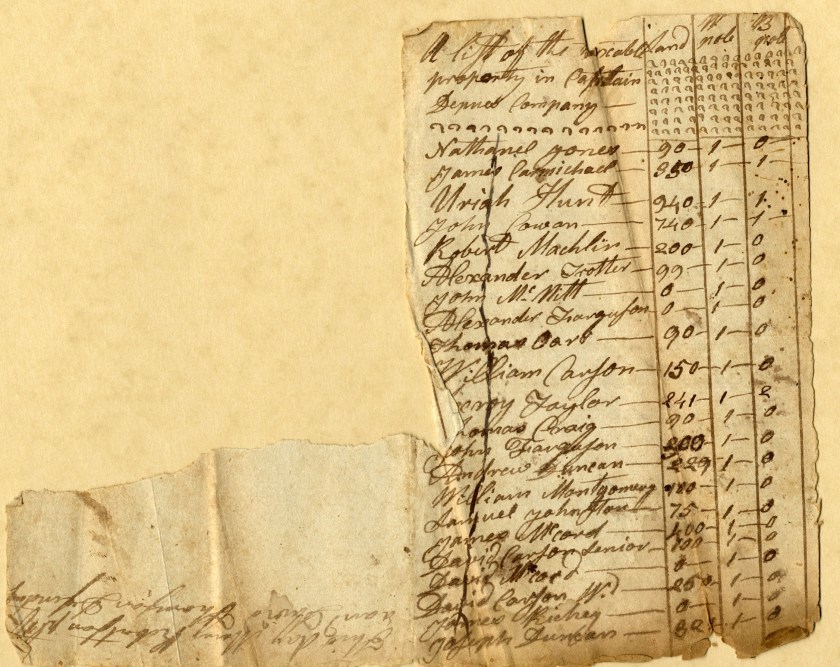 A list of the taxable land W B
property in Captain pole pole
Depues Company —
Nathanel Jones — 90 — 1 — 0
James Carmichael — 350 — 1 — 1
Uriah Hunt — 940 — 1 — 1
John Cowan — 740 — 1 — 1
Robert Machlin — 200 — 1 — 0
Alexander Trotter — 99 — 1 — 0
John McNitt — 0 — 1 — 0
Alexander Farguson — 0 — 1 — 0
Thomas Carr — 90 — 1 — 0
William Carson — 150 — 1 — 0
Leroy Taylor — 241 — 1 — 2
Thomas Craig — 90 — 1 — 0
John Farguson — 200 — 1 — 0
Andrew Duncan — 229 — 1 — 0
William Montgomery 1 — 0
Samuel Johnston — 75 — 1 — 0
James McCord — 400 — 1 — 0
David Carson Senior — 100 — 1 — 0
David McCord 0 — 1 — 0
David Carson — 1 — 0
James Richey — 0 — 1 — 0
Joseph Duncan — 1 — 0